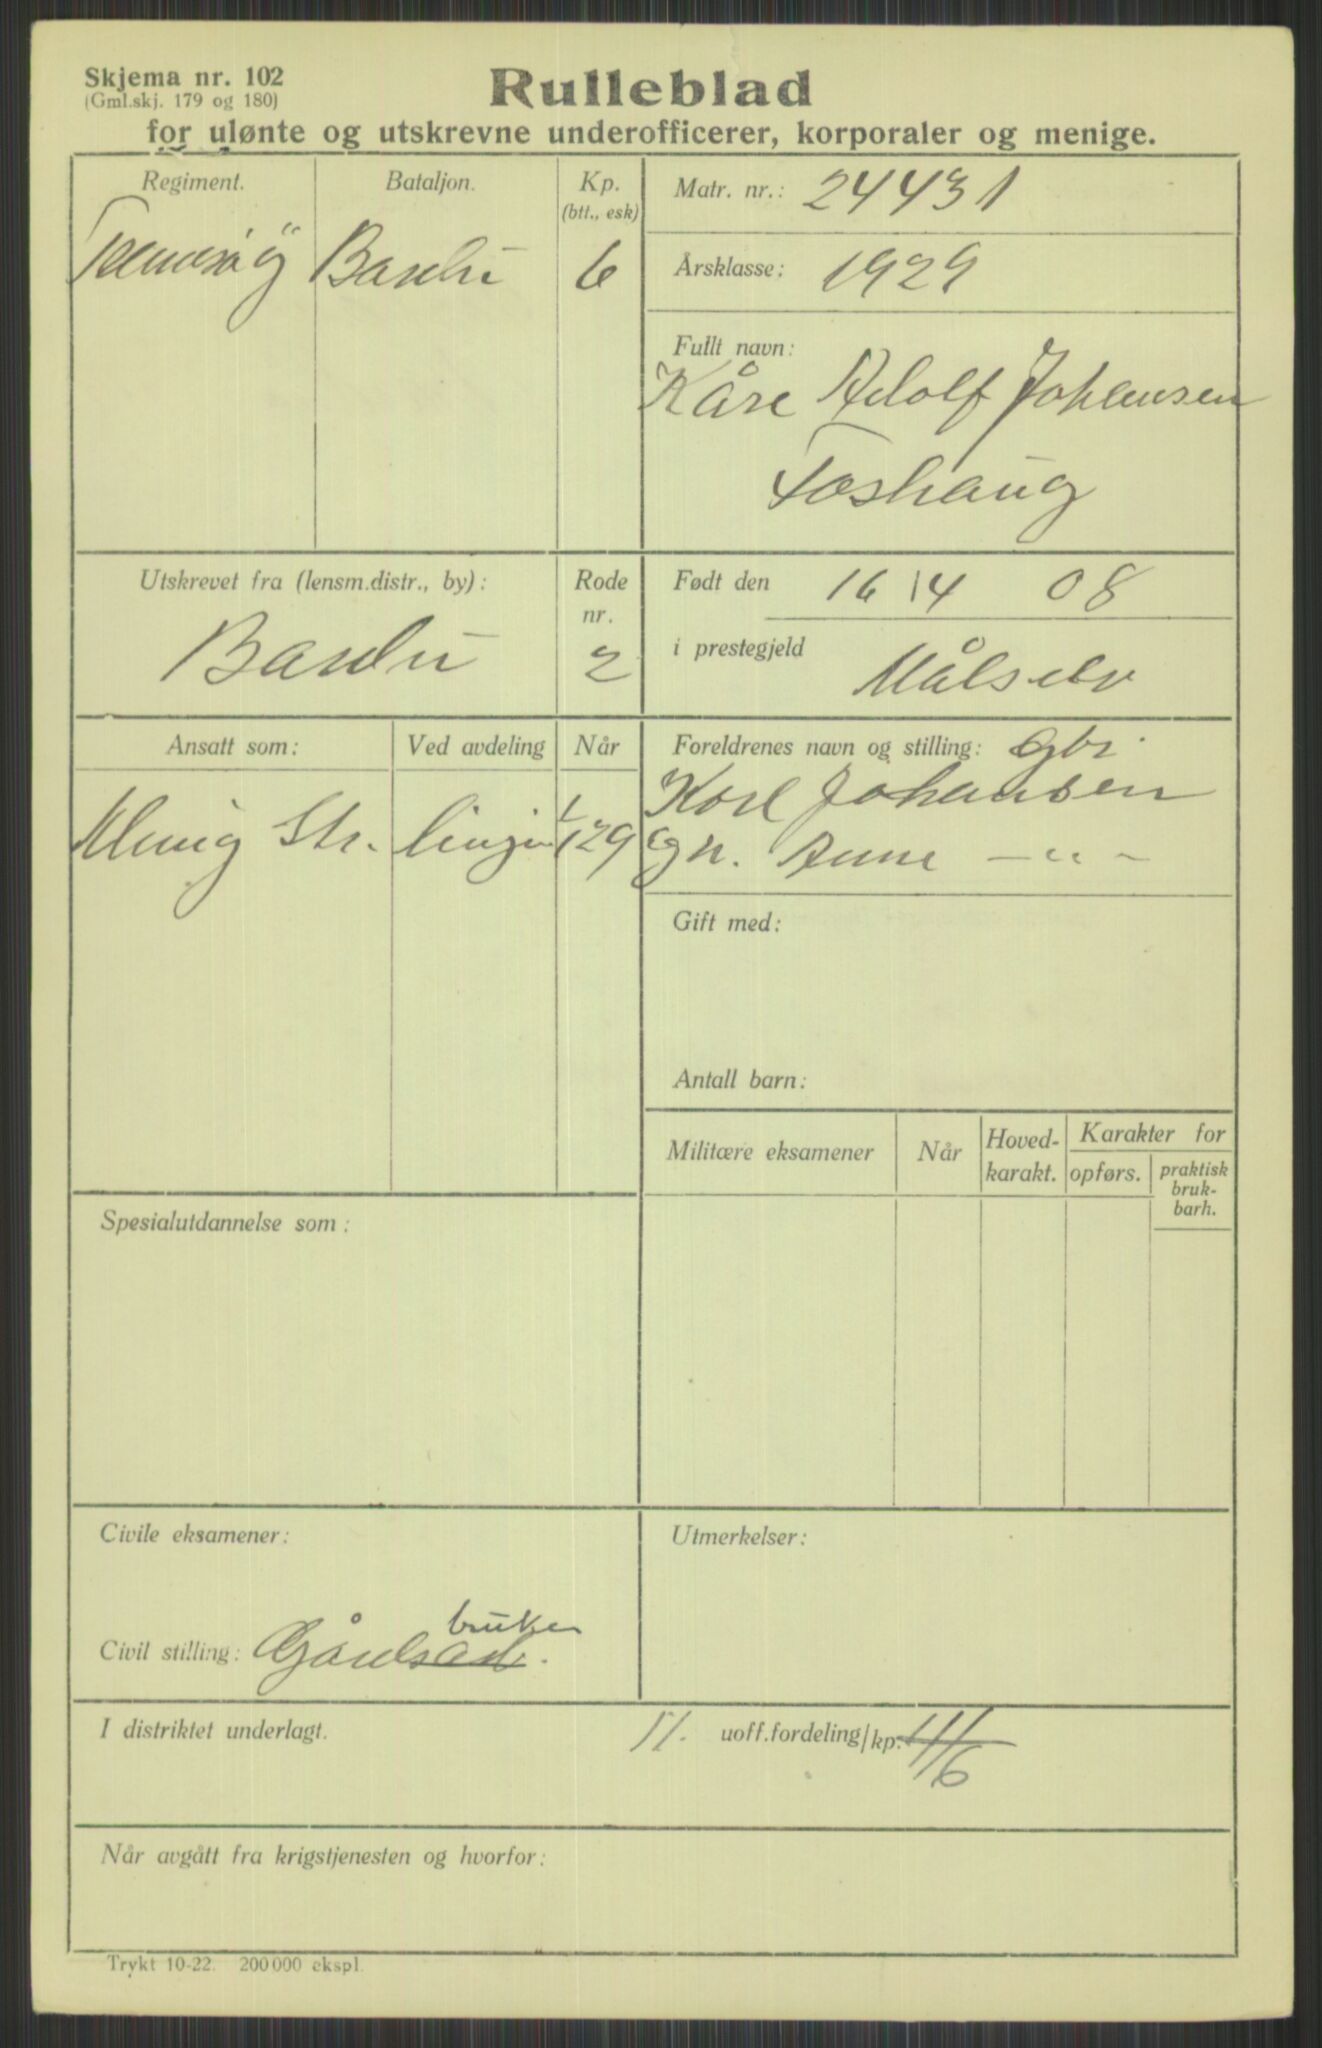 Skjema nr. 102
(Gml.skj. 179 og 180)
Rulleblad
for ulønte og utskrevne underofficerer, korporaler og menige.
Regiment. Bataljon. Kp. (btt., esk)
Bardu 6
Matr. nr.: 24431
Årsklasse: 1929
Fullt navn:
Kåre Adolf Johansen
Foshaug
Utskrevet fra (lensm.distr., by): Rode nr.
Bardu 2
Født den 16/4 08
i prestegjeld Målselv
Ansatt som: Ved avdeling Når
Menig Str. linjen 1/1 29
Foreldrenes navn og stilling: Gbr.
Karl Johansen
og h. Anna — " —
Gift med:
Antall barn:
Militære eksamener Når Hoved-karakt. Karakter for
opførs. praktisk bruk-barh.
Spesialutdannelse som:
Civile eksamener:
Utmerkelser:
bruker
Civil stilling: Gårdsarb.
I distriktet underlagt. uoff.fordeling/kp. 11/6
Når avgått fra krigstjenesten og hvorfor:
Trykt 10-22. 200 000 ekspl.